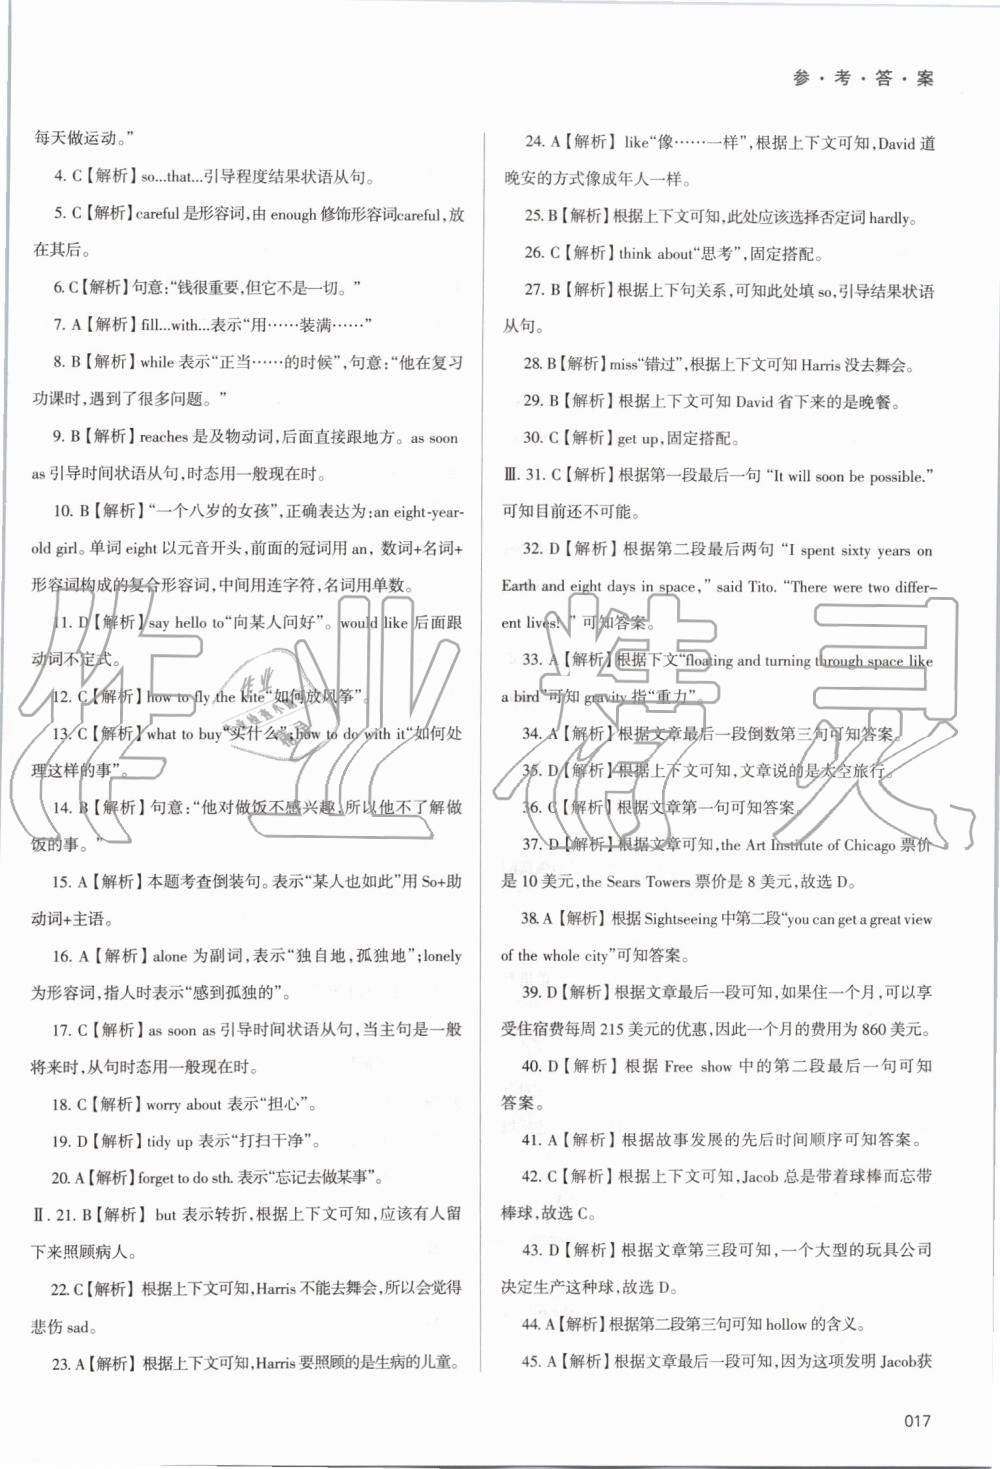 参·考·答·案
每天做运动。”
4. C【解析】so...that...引导程度结果状语从句。
5. C【解析】careful 是形容词,由 enough 修饰形容词careful,放
在其后。
6. C【解析】句意:“钱很重要,但它不是一切。”
7. A【解析】fill...with...表示“用……装满……”
8. B【解析】while 表示“正当……的时候”,句意:“他在复习
功课时,遇到了很多问题。”
9. B【解析】reaches 是及物动词,后面直接跟地方。as soon
as 引导时间状语从句,时态用一般现在时。
10. B【解析】“一个八岁的女孩”,正确表达为:an eight-year-
old girl。单词 eight 以元音开头,前面的冠词用 an, 数词+名词+
形容词构成的复合形容词,中间用连字符,名词用单数。
11. D【解析】say hello to“向某人问好”。would like 后面跟
动词不定式。
12. C【解析】how to fly the kite“如何放风筝”。
13. C【解析】what to buy“买什么”;how to do with it“如何处
理这样的事”。
14. B【解析】句意:“他对做饭不感兴趣,所以他不了解做
饭的事。”
15. A【解析】本题考查倒装句。表示“某人也如此”用 So+助
动词+主语。
16. A【解析】alone 为副词,表示“独自地,孤独地”;lonely
为形容词,指人时表示“感到孤独的”。
17. C【解析】as soon as 引导时间状语从句,当主句是一般
将来时,从句时态用一般现在时。
18. C【解析】worry about 表示“担心”。
19. D【解析】tidy up 表示“打扫干净”。
20. A【解析】forget to do sth. 表示“忘记去做某事”。
Ⅱ. 21. B【解析】but 表示转折,根据上下文可知,应该有人留
下来照顾病人。
22. C【解析】根据上下文可知,Harris 不能去舞会,所以会觉得
悲伤 sad。
23. A【解析】根据上下文可知,Harris 要照顾的是生病的儿童。
24. A【解析】like“像……一样”,根据上下文可知,David 道
晚安的方式像成年人一样。
25. B【解析】根据上下文可知,此处应该选择否定词 hardly。
26. C【解析】think about“思考”,固定搭配。
27. B【解析】根据上下句关系,可知此处填 so,引导结果状语
从句。
28. B【解析】miss“错过”,根据上下文可知 Harris 没去舞会。
29. B【解析】根据上下文可知 David 省下来的是晚餐。
30. C【解析】get up,固定搭配。
Ⅲ. 31. C【解析】根据第一段最后一句 “It will soon be possible.”
可知目前还不可能。
32. D【解析】根据第二段最后两句 “I spent sixty years on
Earth and eight days in space,” said Tito. “There were two differ-
ent lives!” 可知答案。
33. A【解析】根据下文“floating and turning through space like
a bird”可知 gravity 指“重力”。
34. A【解析】根据文章最后一段倒数第三句可知答案。
35. D【解析】根据上下文可知,文章说的是太空旅行。
36. C【解析】根据文章第一句可知答案。
37. D【解析】根据文章可知,the Art Institute of Chicago 票价
是 10 美元,the Sears Towers 票价是 8 美元,故选 D。
38. A【解析】根据 Sightseeing 中第二段“you can get a great view
of the whole city”可知答案。
39. D【解析】根据文章最后一段可知,如果住一个月,可以享
受住宿费每周 215 美元的优惠,因此一个月的费用为 860 美元。
40. D【解析】根据 Free show 中的第二段最后一句可知
答案。
41. A【解析】根据故事发展的先后时间顺序可知答案。
42. C【解析】根据上下文可知,Jacob 总是带着球棒而忘带
棒球,故选 C。
43. D【解析】根据文章第三段可知,一个大型的玩具公司
决定生产这种球,故选 D。
44. A【解析】根据第二段第三句可知 hollow 的含义。
45. A【解析】根据文章最后一段可知,因为这项发明 Jacob获
017
作业精灵